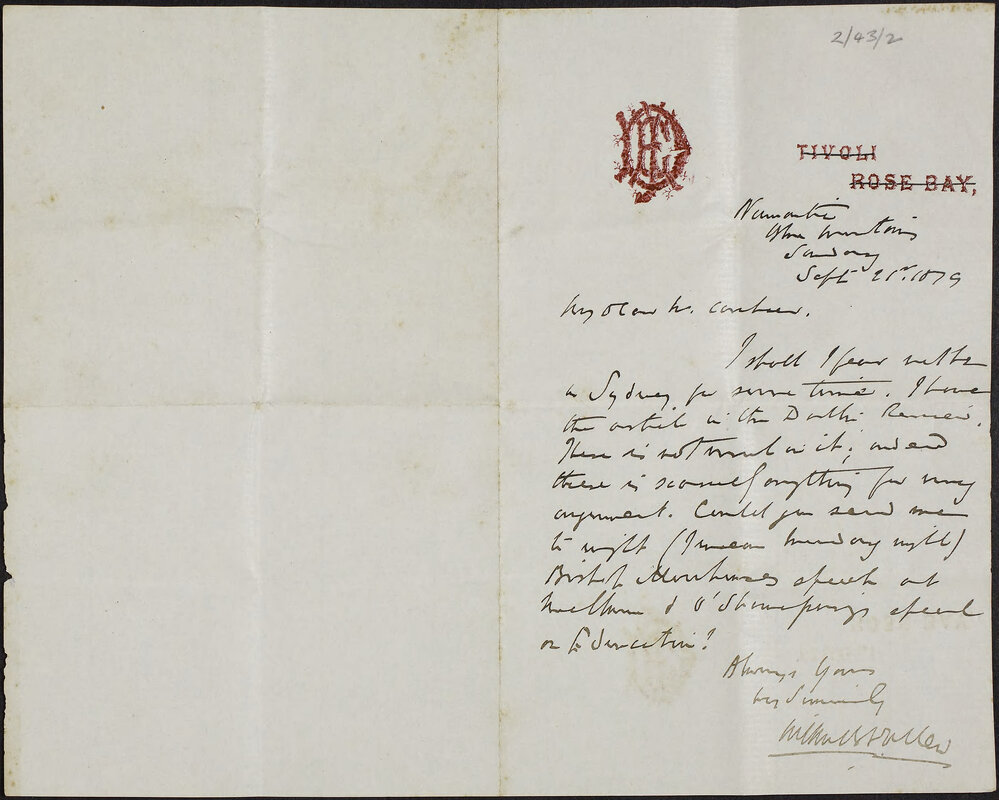 2/43/2
TIVOLI
ROSE BAY,
Blue Mountains
Sunday
Sept 21st. 1879
My Dear Mr.
I shall I fear not be
in Sydney for some time. I have
the article in the Dublin Review.
There is not much in it; indeed
there is scarcely anything for my
argument. Could you send me
to night (I mean Monday night)
Bishop speech at
& O'Shanassy's speech
on Education?
Always Yours
very Sincerely